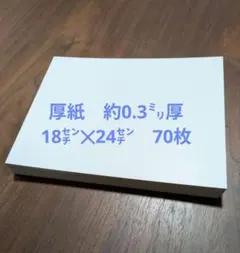 厚紙　約0.3㍉厚
18㌢×24㌢　70枚